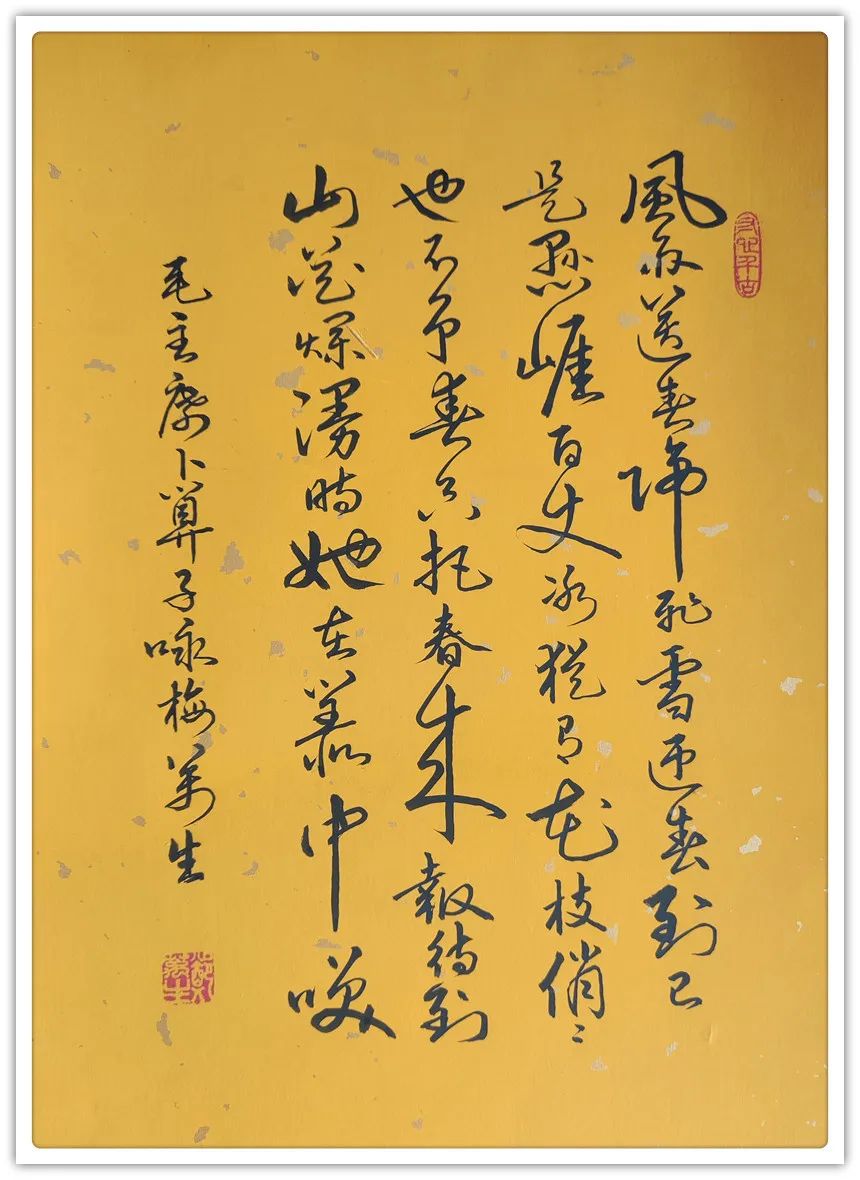 風雨送春歸飛雪迎春到已
是懸崖百丈冰猶有花枝俏〻
也不争春只把春来報待到
山花爛漫時她在叢中咲
毛主席卜算子咏梅萬生